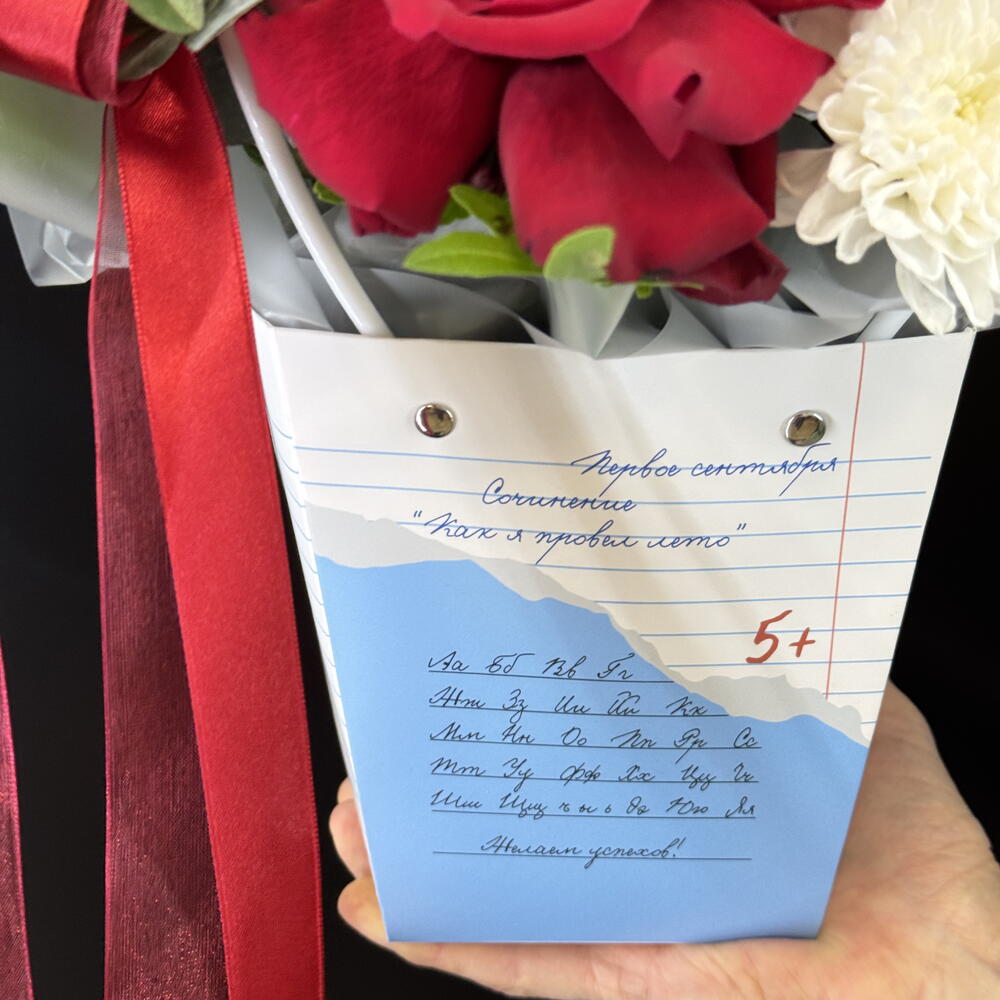 Первое сентября
Сочинение
"Как я провел лето"
5+
Аа Бб Вв Гг
Жж Зз Ии Йй Кк
Мм Нн Оо Пп Рр Сс
Тт Уу Фф Хх Цц Чч
Шш Щщ ъ ы ь Ээ Юю Яя
Желаем успехов!